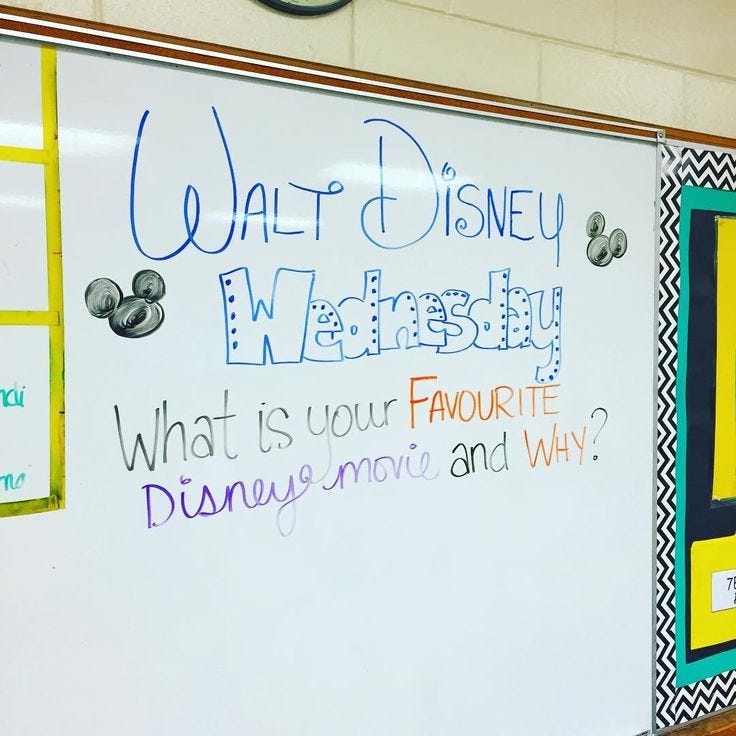 Walt Disney
Wednesday
What is your FAVOURITE
Disney movie and WHY?